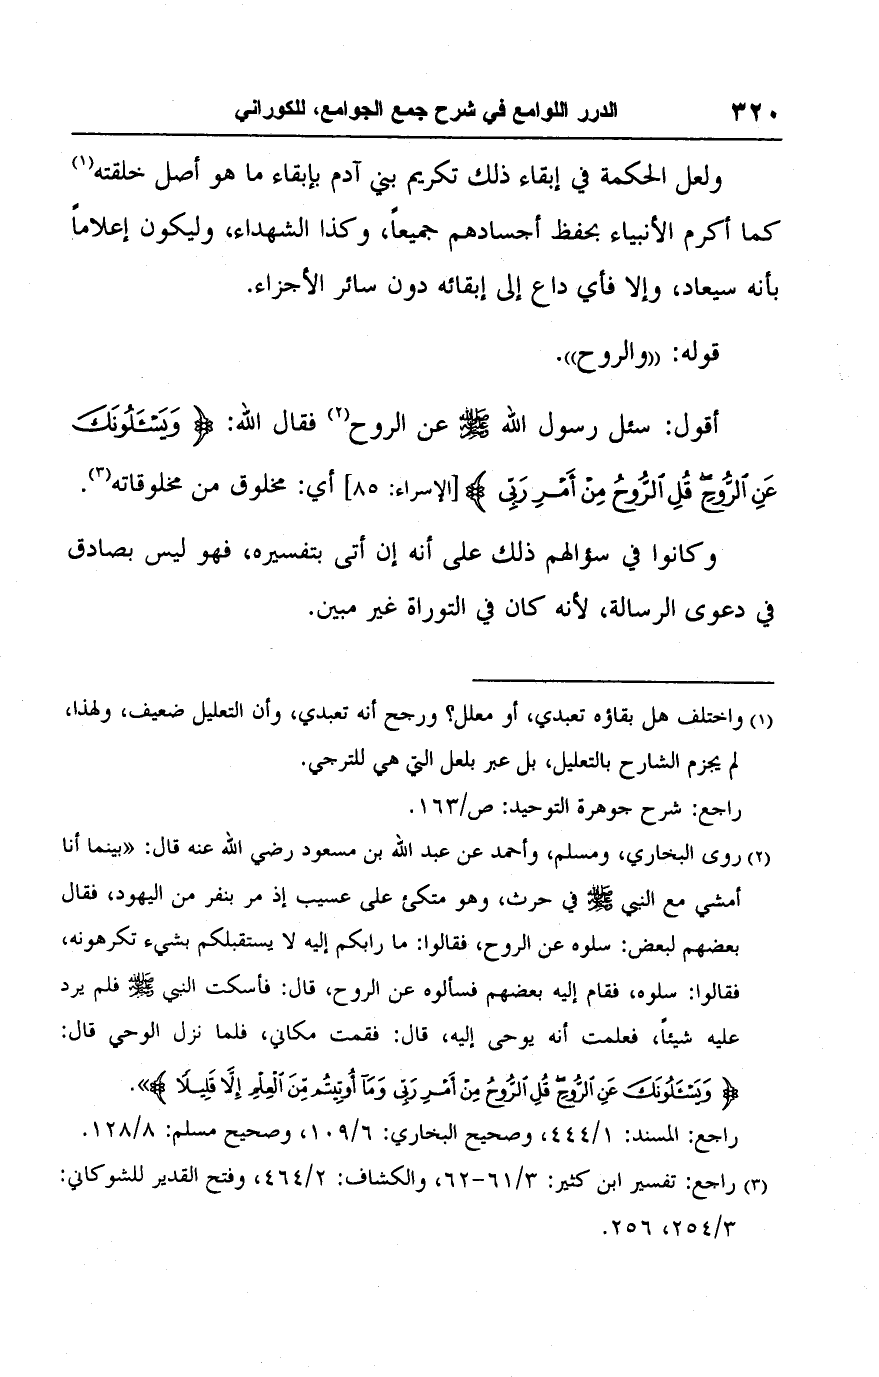 ٣٢٠ الدرر اللوامع في شرح جمع الجوامع، للكوراني
ولعل الحكمة في إبقاء ذلك تكريم بني آدم بإبقاء ما هو أصل خلقته(١)
كما أكرم الأنبياء بحفظ أجسادهم جميعاً، وكذا الشهداء، وليكون إعلاماً
بأنه سيعاد، وإلا فأي داع إلى إبقائه دون سائر الأجزاء.
قوله: ((والروح)).
أقول: سئل رسول الله ﷺ عن الروح(٢) فقال الله: ﴿ وَيَسْـَٔلُونَكَ
عَنِ ٱلرُّوحِۖ قُلِ ٱلرُّوحُ مِنْ أَمْرِ رَبِّى ﴾ [الإسراء: ٨٥] أي: مخلوق من مخلوقاته(٣).
وكانوا في سؤالهم ذلك على أنه إن أتى بتفسيره، فهو ليس بصادق
في دعوى الرسالة، لأنه كان في التوراة غير مبين.
(١) واختلف هل بقاؤه تعبدي، أو معلل؟ ورجح أنه تعبدي، وأن التعليل ضعيف، ولهذا،
لم يجزم الشارح بالتعليل، بل عبر بلعل التي هي للترجي.
راجع: شرح جوهرة التوحيد: ص/١٦٣.
(٢) روى البخاري، ومسلم، وأحمد عن عبد الله بن مسعود رضي الله عنه قال: «بينما أنا
أمشي مع النبي ﷺ في حرث، وهو متكئ على عسيب إذ مر بنفر من اليهود، فقال
بعضهم لبعض: سلوه عن الروح، فقالوا: ما رابكم إليه لا يستقبلكم بشيء تكرهونه،
فقالوا: سلوه، فقام إليه بعضهم فسألوه عن الروح، قال: فأسكت النبي ﷺ فلم يرد
عليه شيئاً، فعلمت أنه يوحى إليه، قال: فقمت مكاني، فلما نزل الوحي قال:
﴿ وَيَسْـَٔلُونَكَ عَنِ ٱلرُّوحِۖ قُلِ ٱلرُّوحُ مِنْ أَمْرِ رَبِّى وَمَآ أُوتِيتُم مِّنَ ٱلْعِلْمِ إِلَّا قَلِيلًا ﴾».
راجع: المسند: ٤٤٤/١، وصحيح البخاري: ١٠٩/٦، وصحيح مسلم: ١٢٨/٨.
(٣) راجع: تفسير ابن كثير: ٦١/٣-٦٢، والكشاف: ٤٦٤/٢، وفتح القدير للشوكاني:
٢٥٤/٣، ٢٥٦.